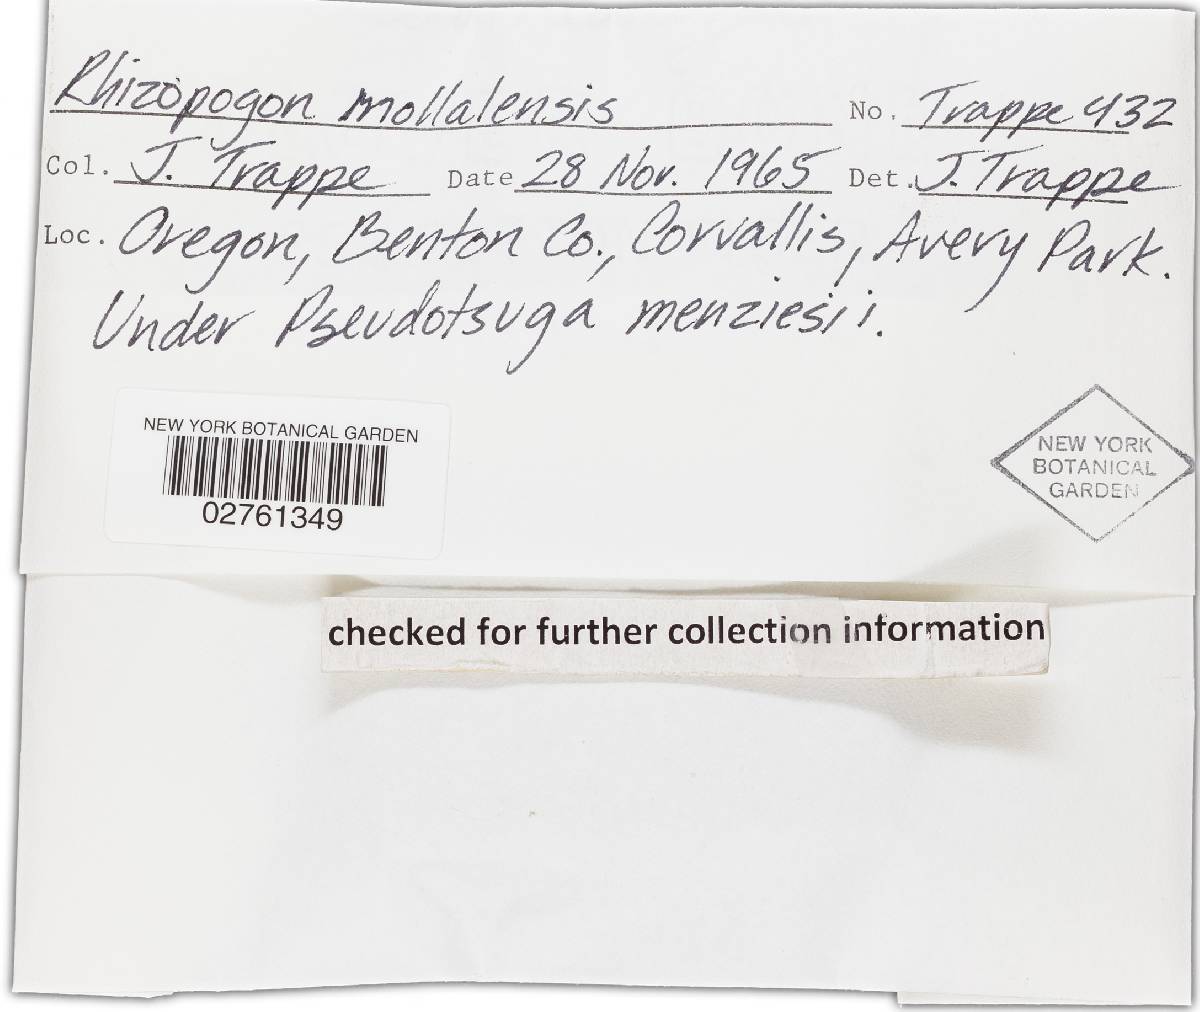 Rhizopogon mollalensis No. Trappe 432
Col. J. Trappe Date 28 Nov. 1965 Det. J. Trappe
Loc. Oregon, Benton Co., Corvallis, Avery Park.
Under Pseudotsuga menziesii.
NEW YORK BOTANICAL GARDEN
02761349
NEW YORK
BOTANICAL
GARDEN
checked for further collection information